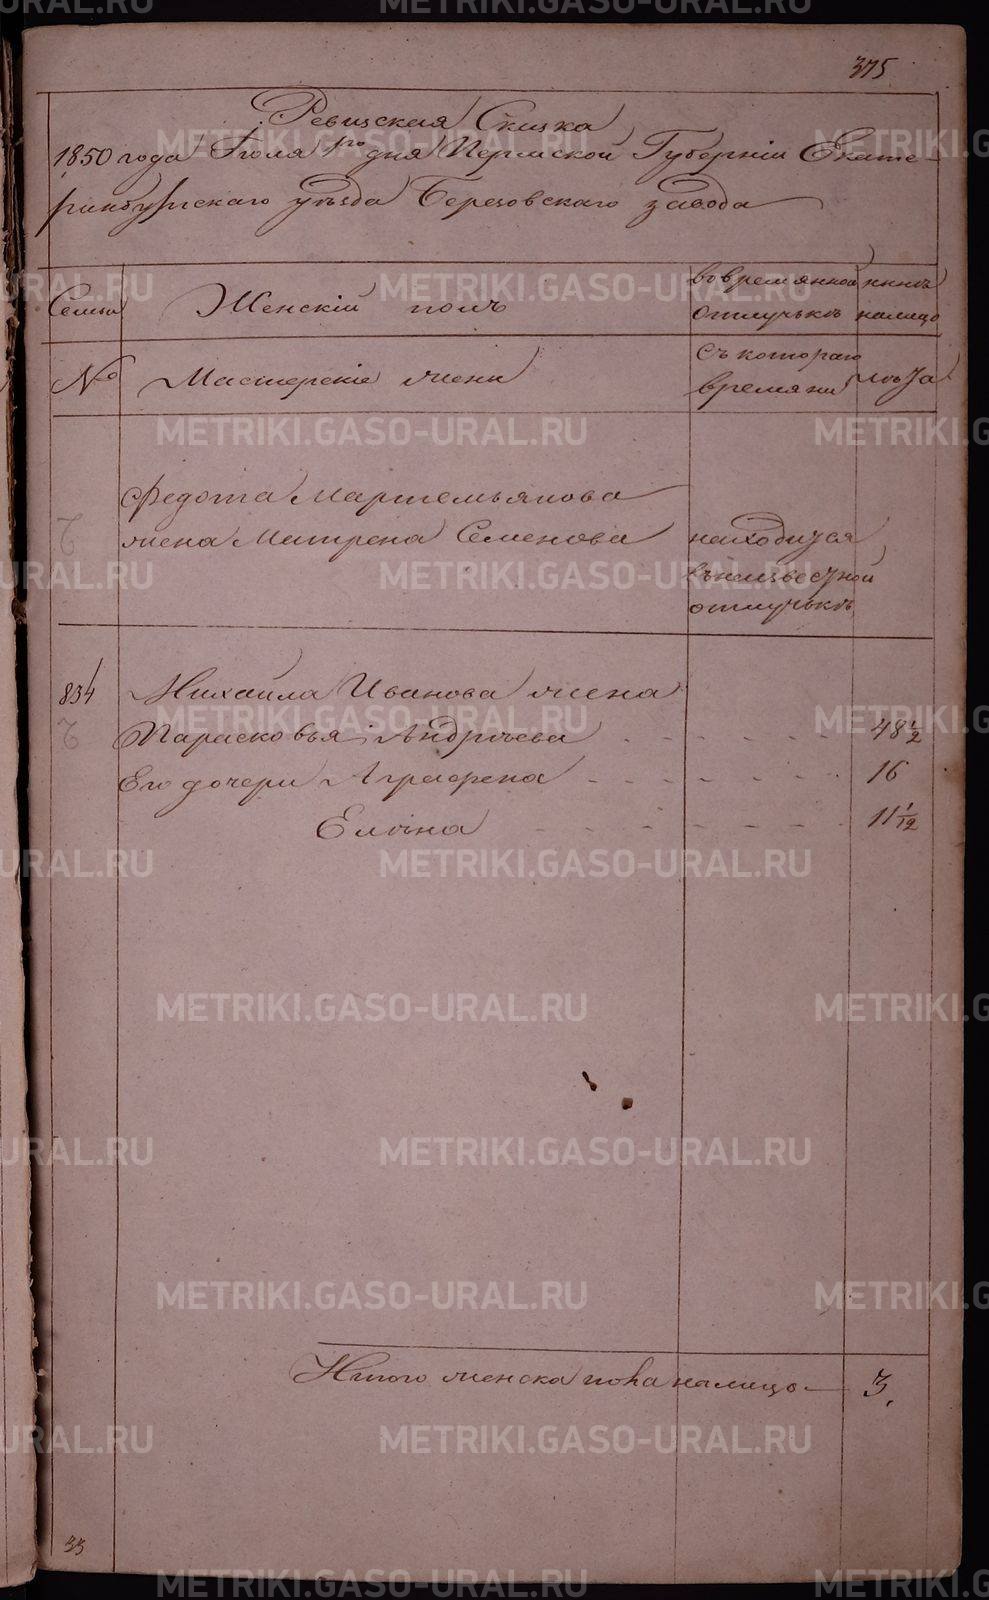 375
Ревизская Сказка
1850 года Июля 1го дня Пермской Губернiи Екате-
ринбургскаго уезда Березовскаго завода
Семьи
Женскiй полъ
во временной отлучькѣ
ныне на лицо
№
Мастерскiе жены
Съ котораго времяни
лета
Федота Мартемьянова
жена Матрена Семенова
находится
въ неизвестной
отлучькѣ
834
Михаила Иванова жена
Парасковья Андреева 48 1/2
Его дочери Аграфена 16
Елена 11 1/12
Итого женска пола налицо 3.
33
METRIKI.GASO-URAL.RU